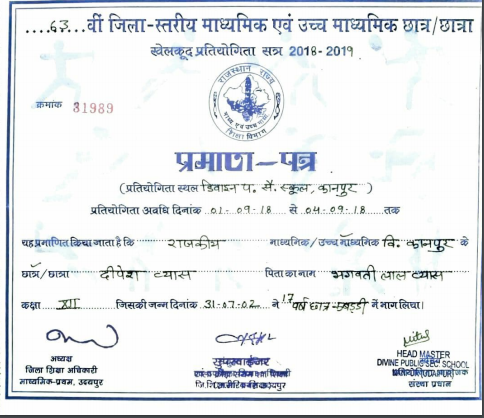 ....63....वीं जिला-स्तरीय माध्यमिक एवं उच्च माध्यमिक छात्र/छात्रा
खेलकूद प्रतियोगिता सत्र 2018-2019
राजस्थान राज्य
शिक्षा विभाग
क्रमांक 31989
प्रमाण-पत्र
(प्रतियोगिता स्थल डिवाइन प. सै. स्कूल, कानपुर )
प्रतियोगिता अवधि दिनांक 01-09-18 से 04-09-18 तक
यह प्रमाणित किया जाता है कि राजकीय माध्यमिक/उच्च माध्यमिक वि. कानपुर के
छात्र/छात्रा दीपेश व्यास पिता का नाम भगवती लाल व्यास
कक्षा XII जिसकी जन्म दिनांक 31-07-02 ने 17 वर्ष छात्र कबड्डी में भाग लिया।
अध्यक्ष
जिला शिक्षा अधिकारी
माध्यमिक-प्रथम, उदयपुर
HEAD MASTER
DIVINE PUBLIC SEC. SCHOOL
संस्था प्रधान